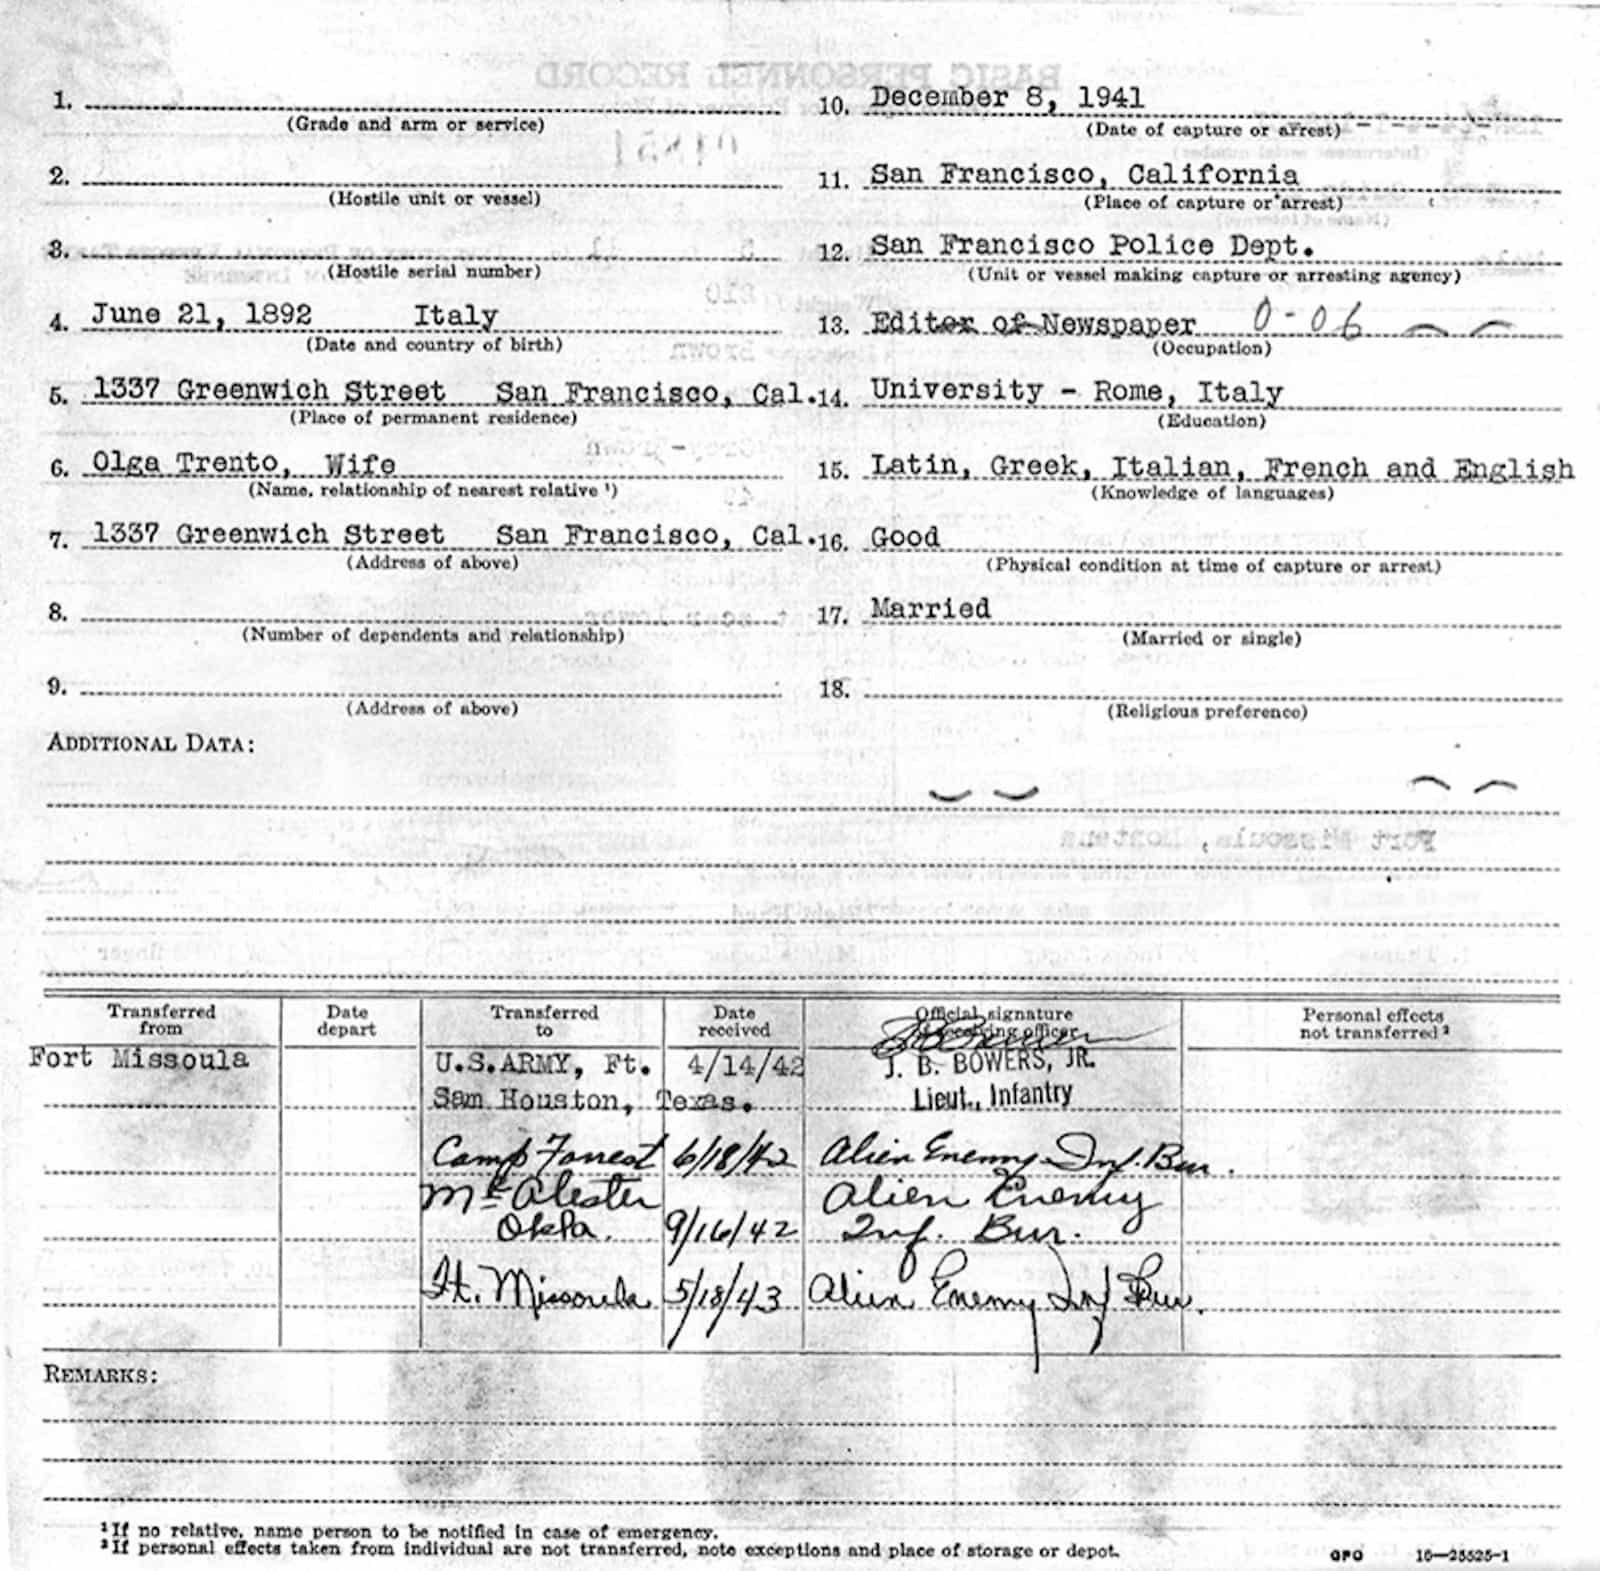 1.
(Grade and arm or service)
2.
(Hostile unit or vessel)
3.
(Hostile serial number)
4. June 21, 1892 Italy
(Date and country of birth)
5. 1337 Greenwich Street San Francisco, Cal.
(Place of permanent residence)
6. Olga Trento, Wife
(Name, relationship of nearest relative ¹)
7. 1337 Greenwich Street San Francisco, Cal.
(Address of above)
8.
(Number of dependents and relationship)
9.
(Address of above)
10. December 8, 1941
(Date of capture or arrest)
11. San Francisco, California
(Place of capture or arrest)
12. San Francisco Police Dept.
(Unit or vessel making capture or arresting agency)
13. Editor of Newspaper 0-06
(Occupation)
14. University - Rome, Italy
(Education)
15. Latin, Greek, Italian, French and English
(Knowledge of languages)
16. Good
(Physical condition at time of capture or arrest)
17. Married
(Married or single)
18.
(Religious preference)
ADDITIONAL DATA:
Transferred from Date depart Transferred to Date received Official signature of receiving officer Personal effects not transferred ²
Fort Missoula U.S.ARMY, Ft. 4/14/42 J. B. BOWERS, JR.
Sam Houston, Texas. Lieut., Infantry
Camp Forrest 6/18/42 Alien Enemy Inf. Bur.
McAlester Alien Enemy
Okla. 9/16/42 Inf. Bur.
Ft. Missoula 5/18/43 Alien Enemy Inf Bur.
REMARKS:
¹ If no relative, name person to be notified in case of emergency.
² If personal effects taken from individual are not transferred, note exceptions and place of storage or depot.
GPO 16—25525-1